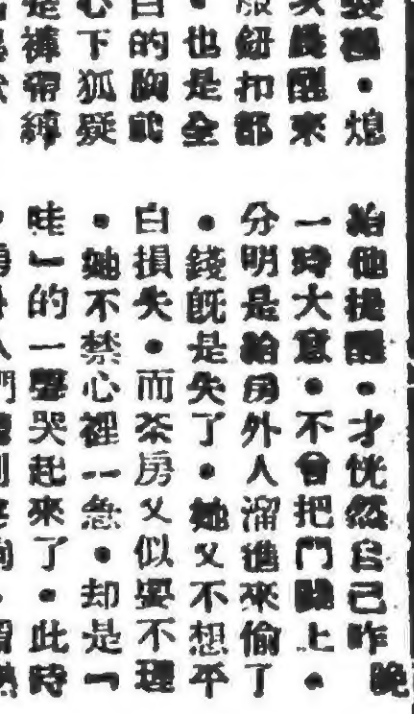 熄
晨醒來
服鈕扣都
・也是全
白的胸
心下狐疑
是褲帶
給他提醒・才恍然自己昨晚
一時大意・不曾把門關上・
分明是給房外人溜進來偷了
・錢既是失了・她又不想平
白損失・而茶房又似要不理
・她不禁心裡一急・却是「
哇」的一聲哭起來了・此時